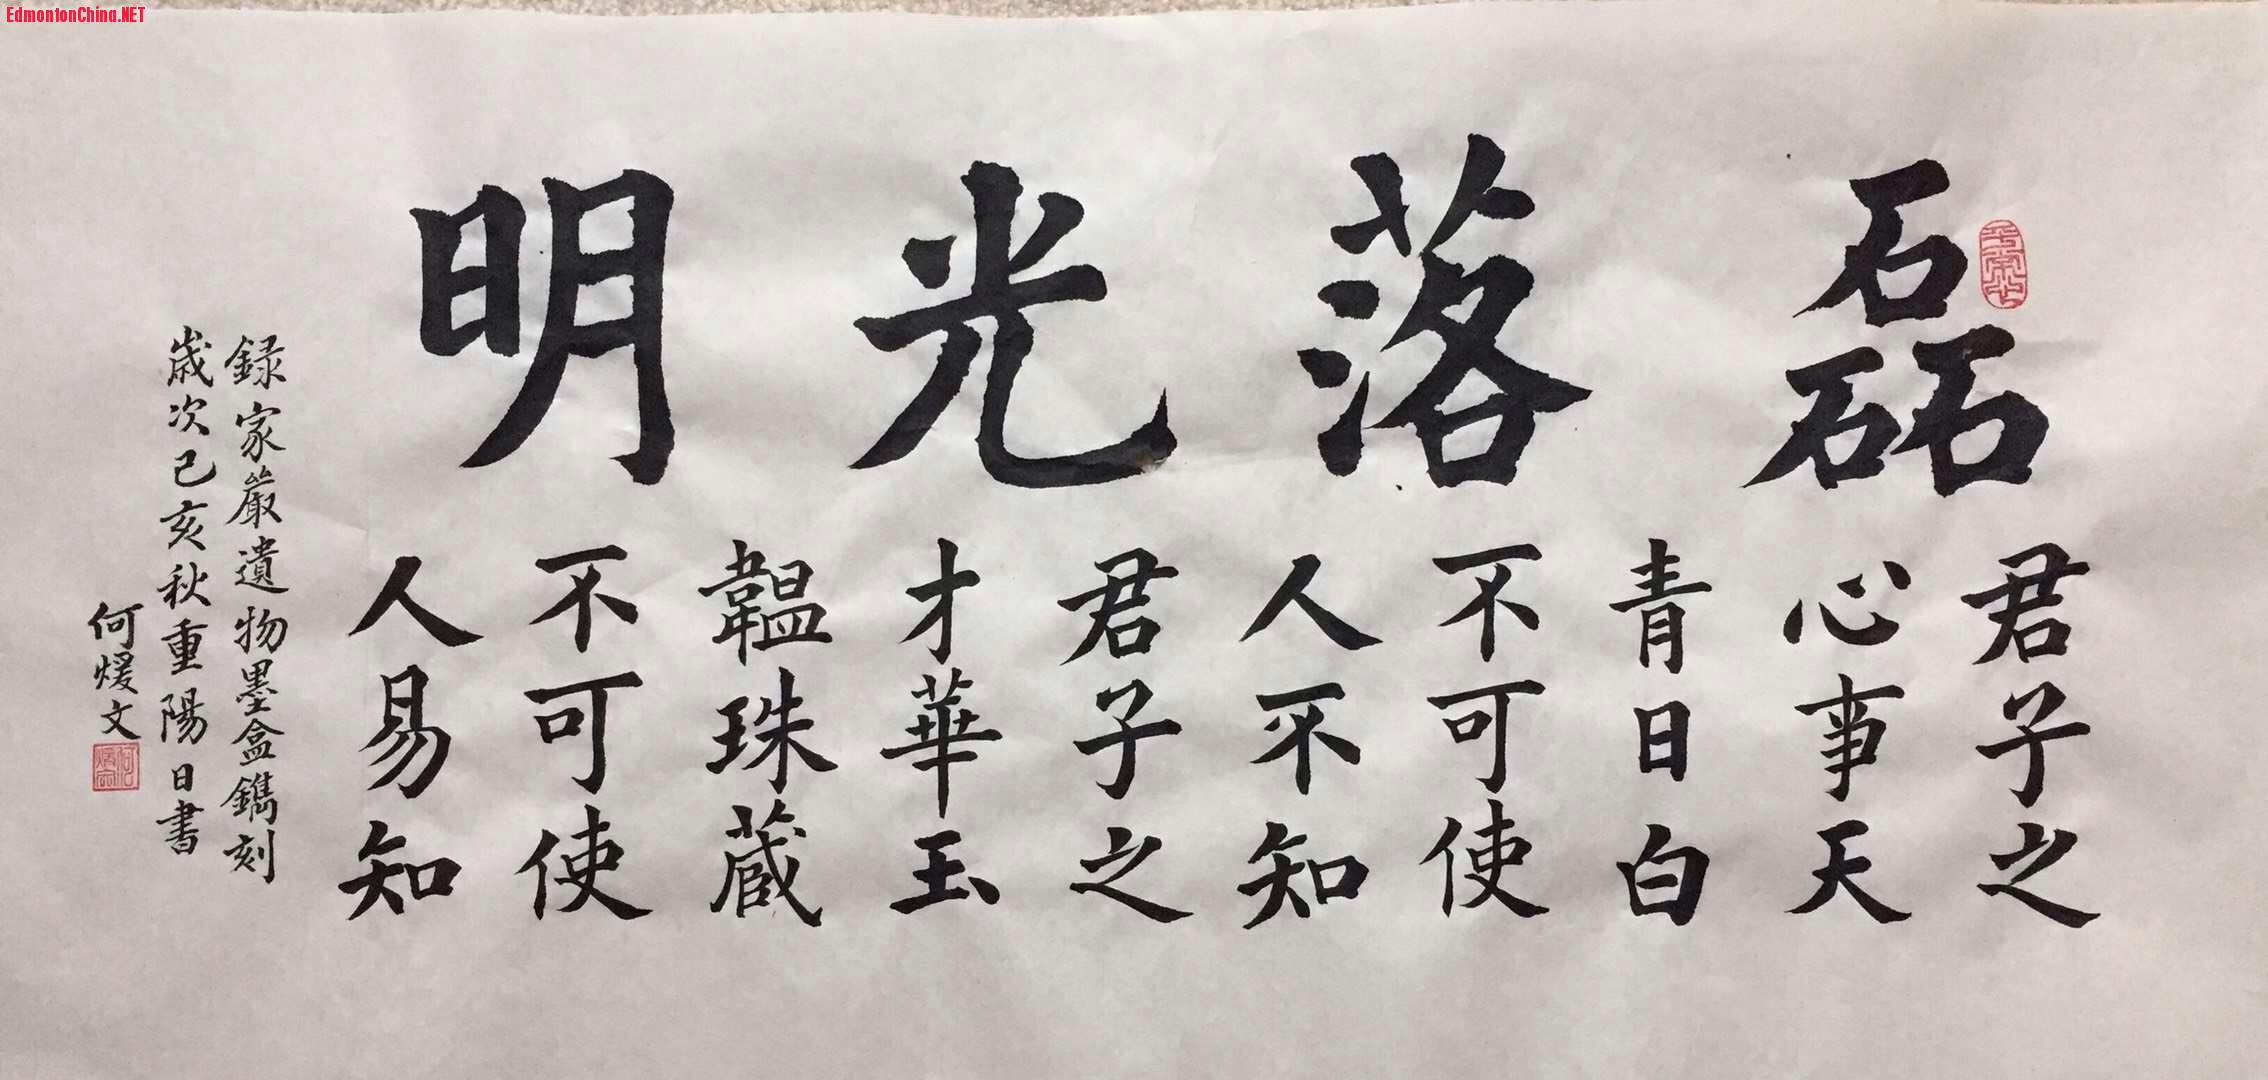 EdmontonChina.NET
磊落光明
君子之
心事天
青日白
不可使
人不知
君子之
才華玉
韞珠蔵
不可使
人易知
録家嚴遺物墨盒鐫刻
歳次己亥秋重陽日書
何煖文
平常心